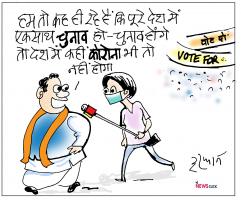 हम तो कह ही रहे हैं कि पूरे देश में
एकसाथ चुनाव हो-चुनाव होंगे
तो देश में कहीं कोरोना भी तो
नहीं होगा
वोट दो
VOTE FOR
इरफान
NEWSCLICK